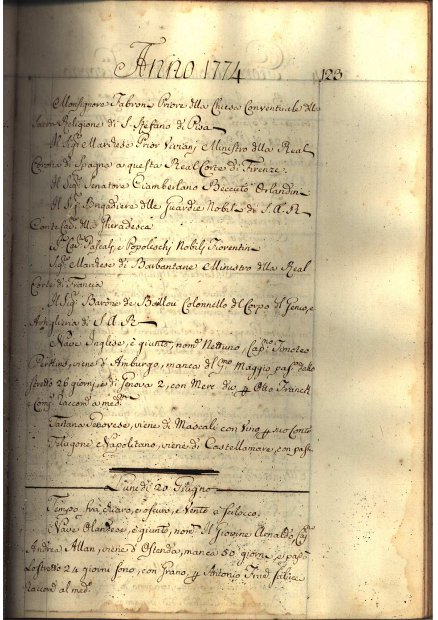 Anno 1774
123
Monsignore Fabroni Priore della Chiesa Conventuale della
Sacra Religione di S. Stefano di Pisa
Il Sig.r Marchese Prior Viviani Ministro della Real
Corona di Spagna a questa Real Corte di Firenze.
Il Sig.r Senatore Ciamberlano Orlandini
Il S.r Brigadiere delle Guardie Nobili di S. A. R.
Conte della Gheradesca
Pascali, e Popoleschi Nobili Fiorentini
Sig.r Marchese di Barbantane Ministro della Real
Corte di Francia
Il Sig.r Barone de Baillou Colonnello del Corpo di Genio, e
Artiglieria di S. A. R.
Nave Inglese, è giunto, nom.o Nettuno, Cap.no Timoteo
Perkins, viene d'Amburgo, manca del p.mo Maggio
stretto 26 giorni, e di Genova 2, con Merc. Otto Franck
Raccond. a med.mo
Tartana Genovese, viene di Mascali con Vino p suo Conto
Felugone Napolitano, viene di Castellamare, con paste
Lunedì 20 Giugno
Tempo fra chiaro, e oscuro, e Vento a Scilocco
Nave Olandese, è giunto, nom.o Il Giovine Arnaldo, Cap.
Andrea Allan, viene d'Ostenda, manca 50 giorni, e
Lo stretto 24 giorni sono, con Grano, p Antonio
Raccond. al med.mo